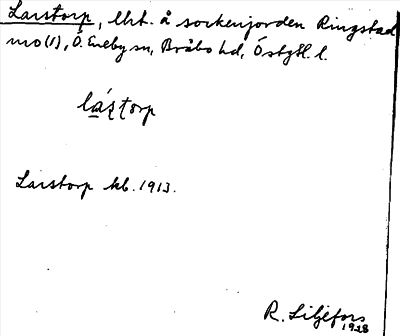 Larstorp, lht. å sockenjorden Ringstad
mo (1), Ö. Eneby sn, Bråbo hd, Östgötl. l.
lástorp
Larstorp kb. 1913.
R. Liljefors
1928